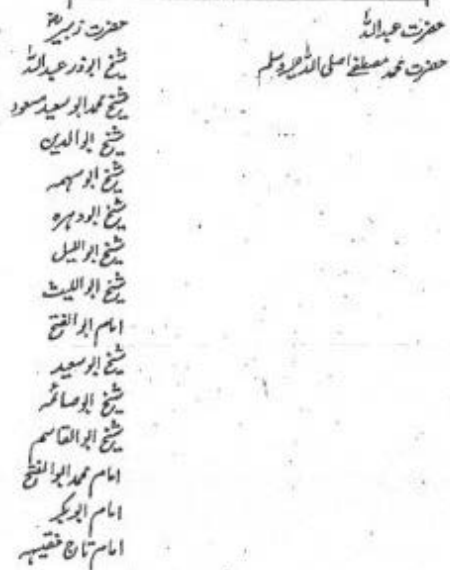 حضرت عبداللہ
حضرت محمد مصطفےٰ صلی اللہ علیہ وسلم
حضرت زبیرؓ
شیخ ابوذر عبداللہ
شیخ محمد ابو سعید مسعود
شیخ ابوالدین
شیخ ابو سہمہ
شیخ ابودہرہ
شیخ ابواللیل
شیخ ابواللیث
امام ابوالفتح
شیخ ابوسعید
شیخ ابوصائمہ
شیخ ابوالقاسم
امام محمد ابوالفتح
امام ابوبکر
امام تاج فقیہہ